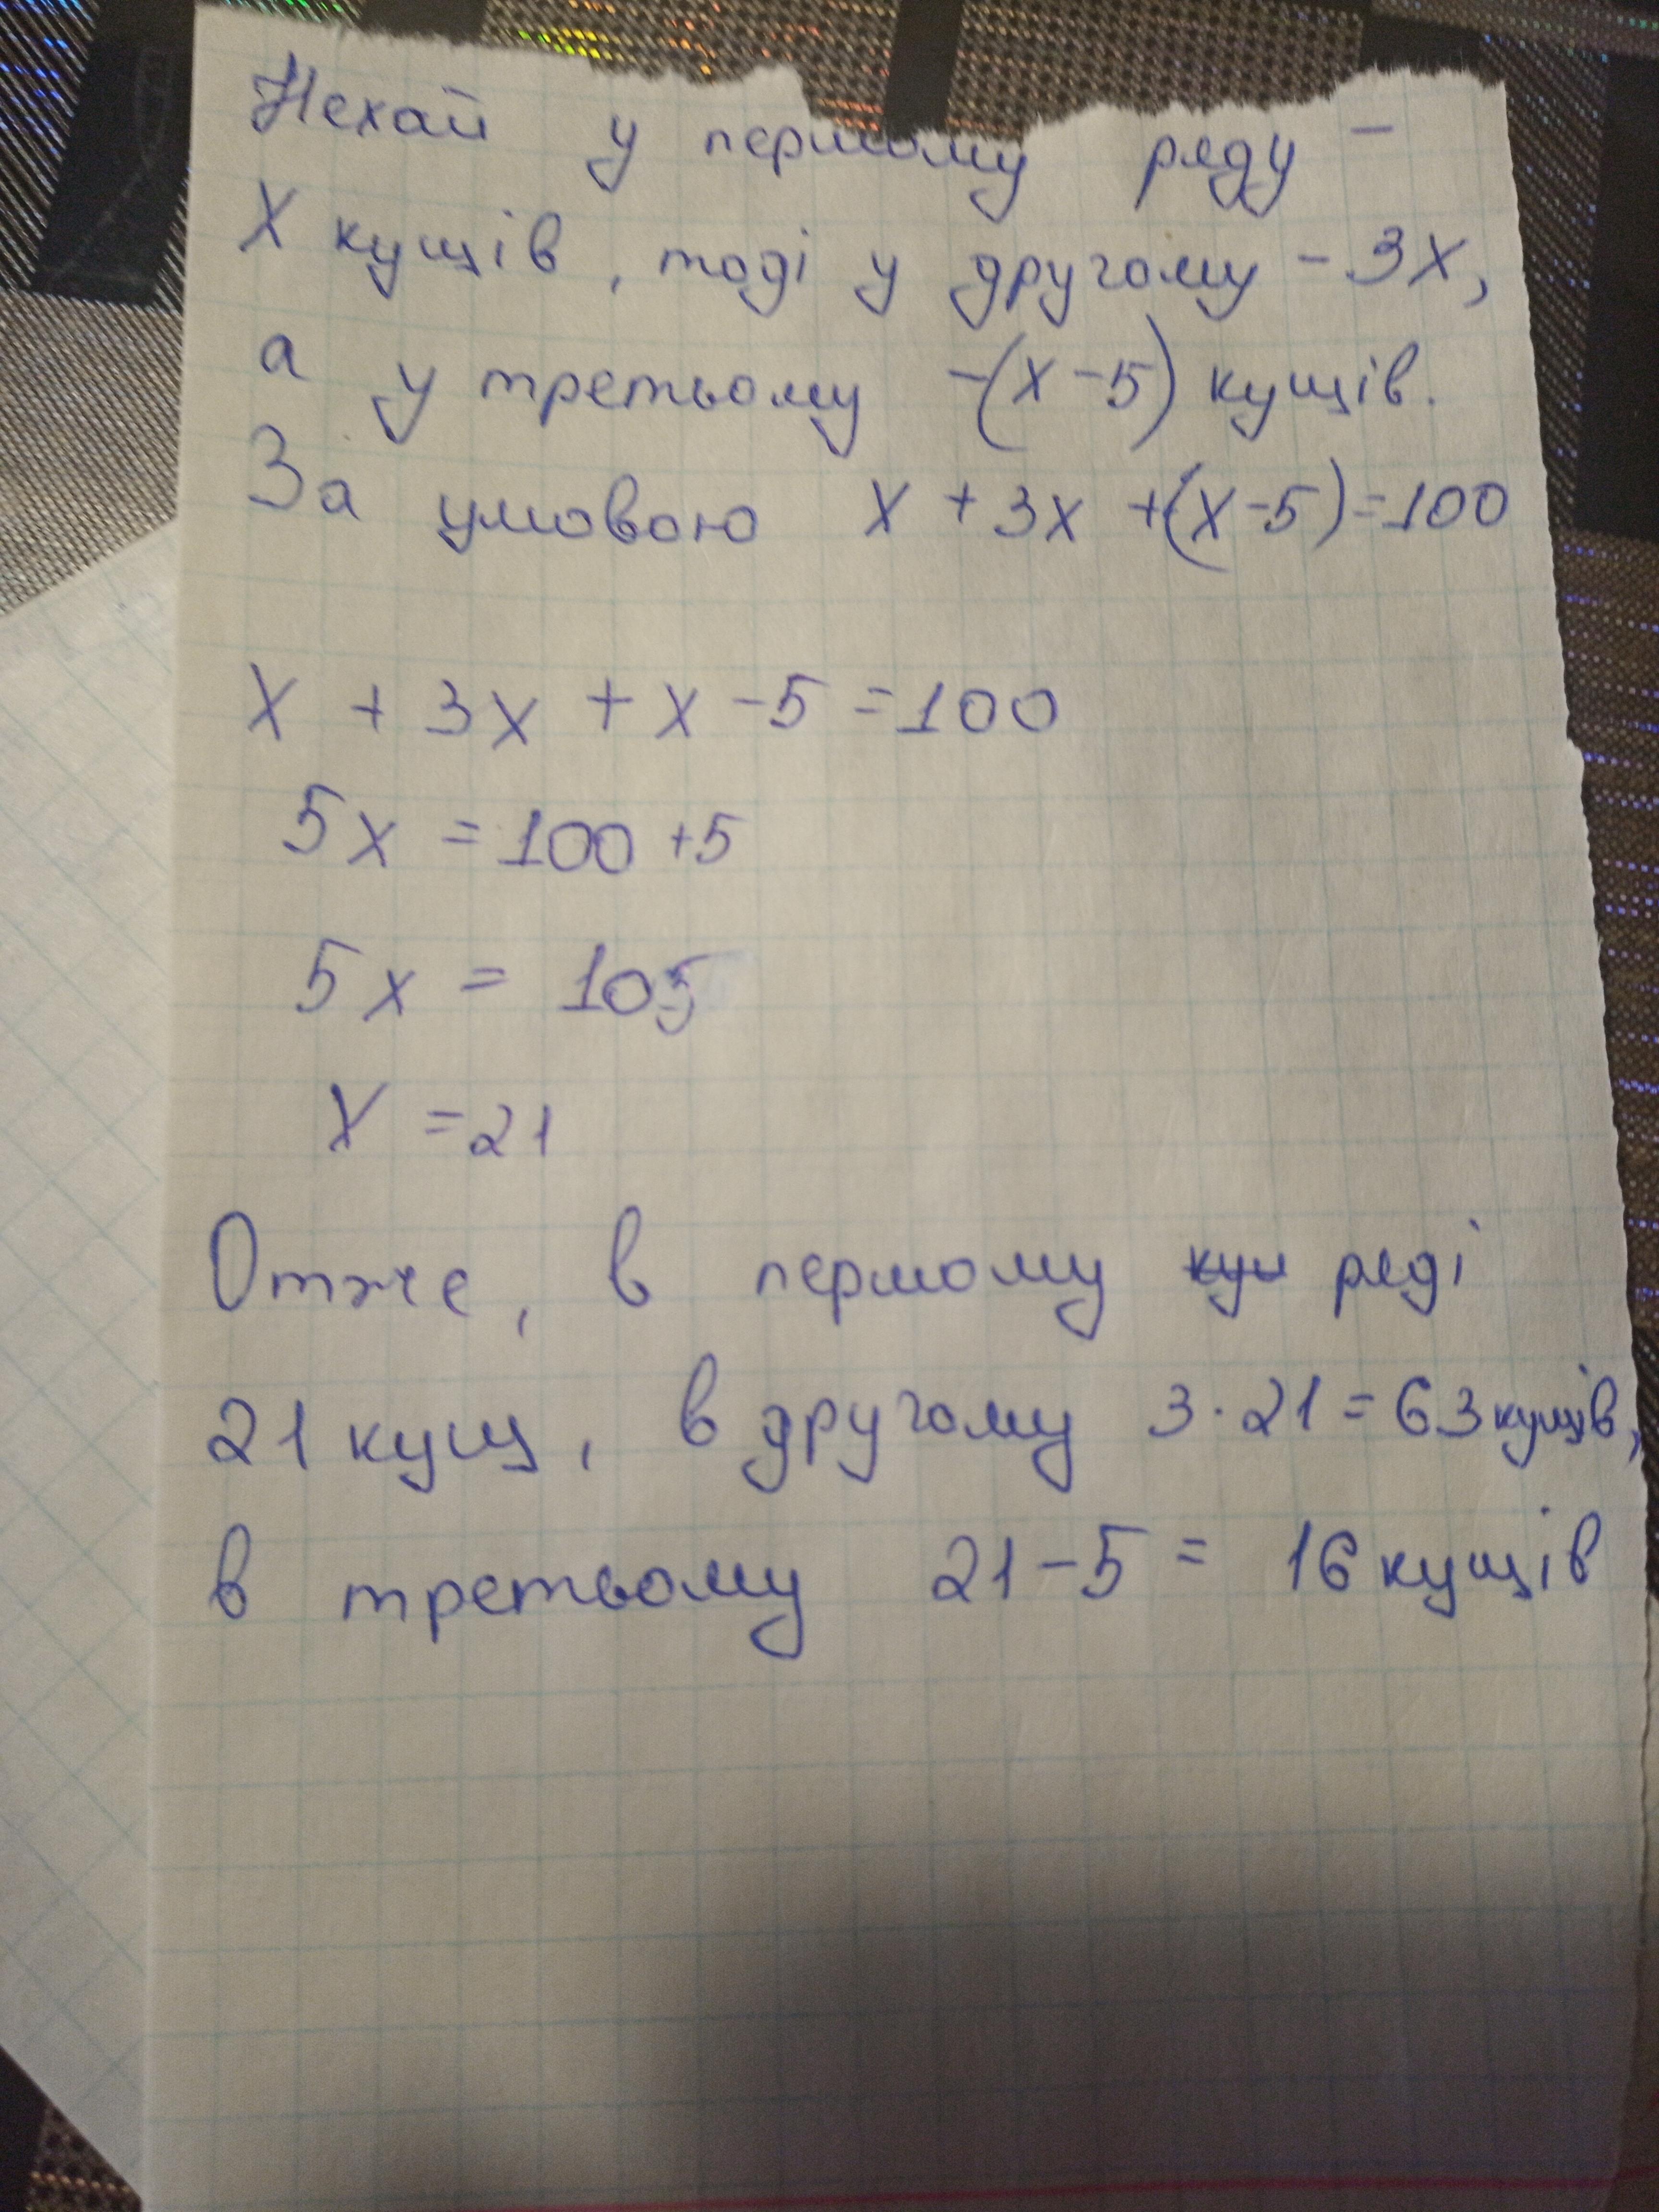 Нехай у першому ряду –
X кущів, тоді у другому – 3x,
а у третьому – (x – 5) кущів.
За умовою x + 3x + (x – 5) = 100
x + 3x + x – 5 = 100
5x = 100 + 5
5x = 105
x = 21
Отже, в першому кущ ряді
21 кущ, в другому 3 · 21 = 63 кущів,
в третьому 21 – 5 = 16 кущів